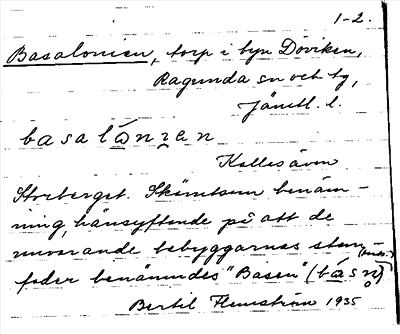 1-2.
Basalonien, torp i byn Döviken,
Ragunda sn och tg,
Jämtl. l.
basalånzen
Kallas även
Storberget. Skämtsam benäm-
ning, hänsyftande på att de
nuvarande bebyggarnas stam-
fader benämndes "Basen" (båsn̥)
Bertil Flemström 1935